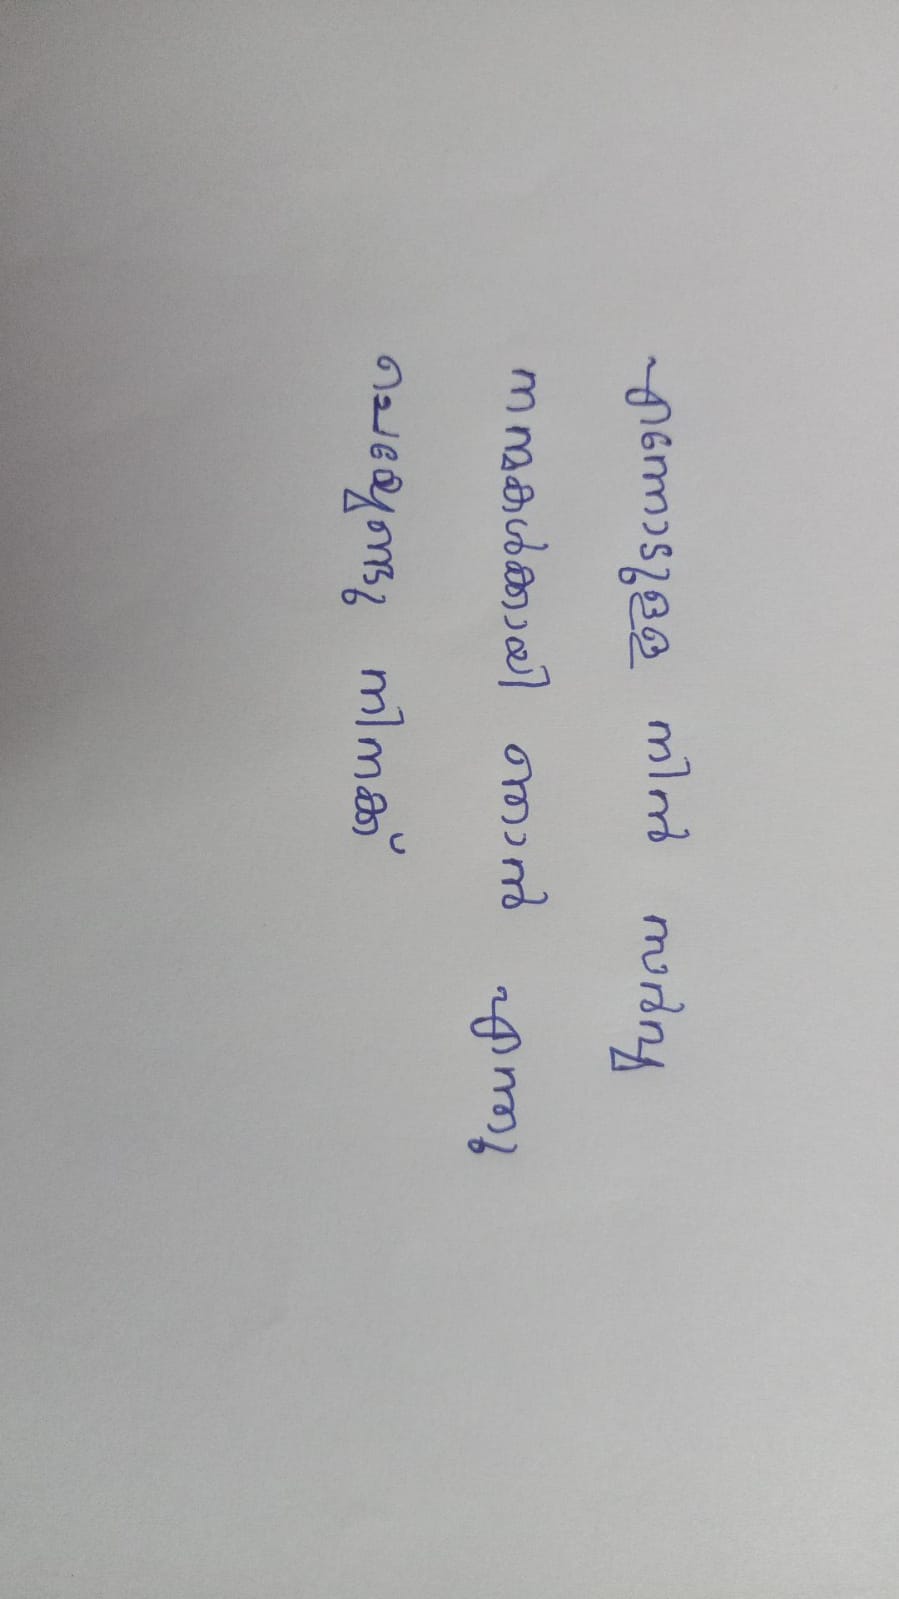 എന്നോടുള്ള നിൻ സർവ്വ
നന്മകൾക്കായി ഞാൻ എന്തു
ചെയ്യേണ്ടു നിനക്ക്